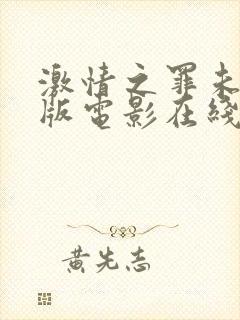 激情之罪未
版電影在綫
黃先志